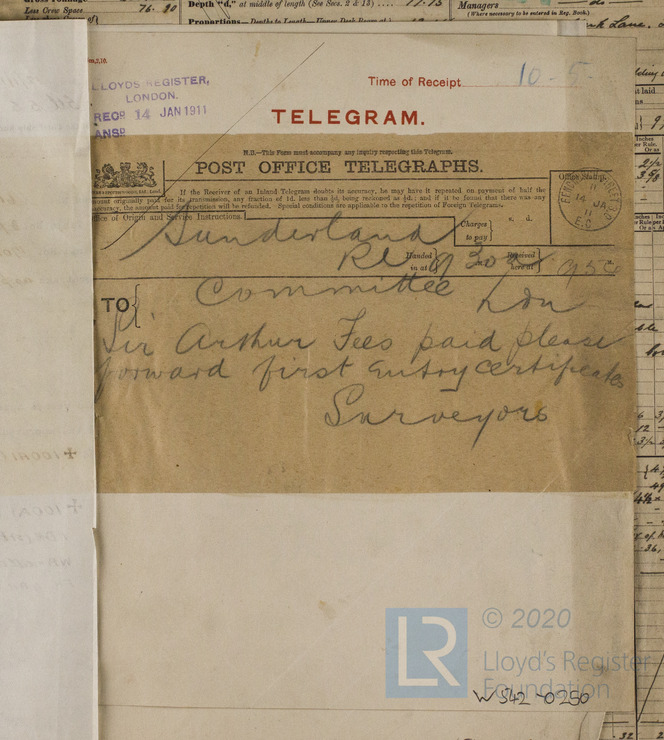 Less Crew Space 76.90
Depth "d," at middle of length (See Secs. 2 & 13)
Managers
(Where necessary to be entered in Reg. Book.)
LLOYDS REGISTER,
LONDON.
RECD 14 JAN 1911
ANSD
Time of Receipt 10-5
TELEGRAM.
N.B.—This Form must accompany any inquiry respecting this Telegram.
POST OFFICE TELEGRAPHS.
If the Receiver of an Inland Telegram doubts its accuracy, he may have it repeated on payment of half the
amount originally paid for its transmission, any fraction of 1d. less than ½d. being reckoned as ½d.; and if it be found that there was any
inaccuracy, the amount paid for repetition will be refunded. Special conditions are applicable to the repetition of Foreign Telegrams.
Office Stamp.
14 JA
11
E.C
Office of Origin and Service Instructions.
Sunderland
Charges to pay s. d.
Handed in at 930 Received here at
TO
Committee Ldn
Sir Arthur Fees paid please
forward first entry certificates
Surveyors
LR
© 2020
Lloyd's Register
Foundation
W542-0250